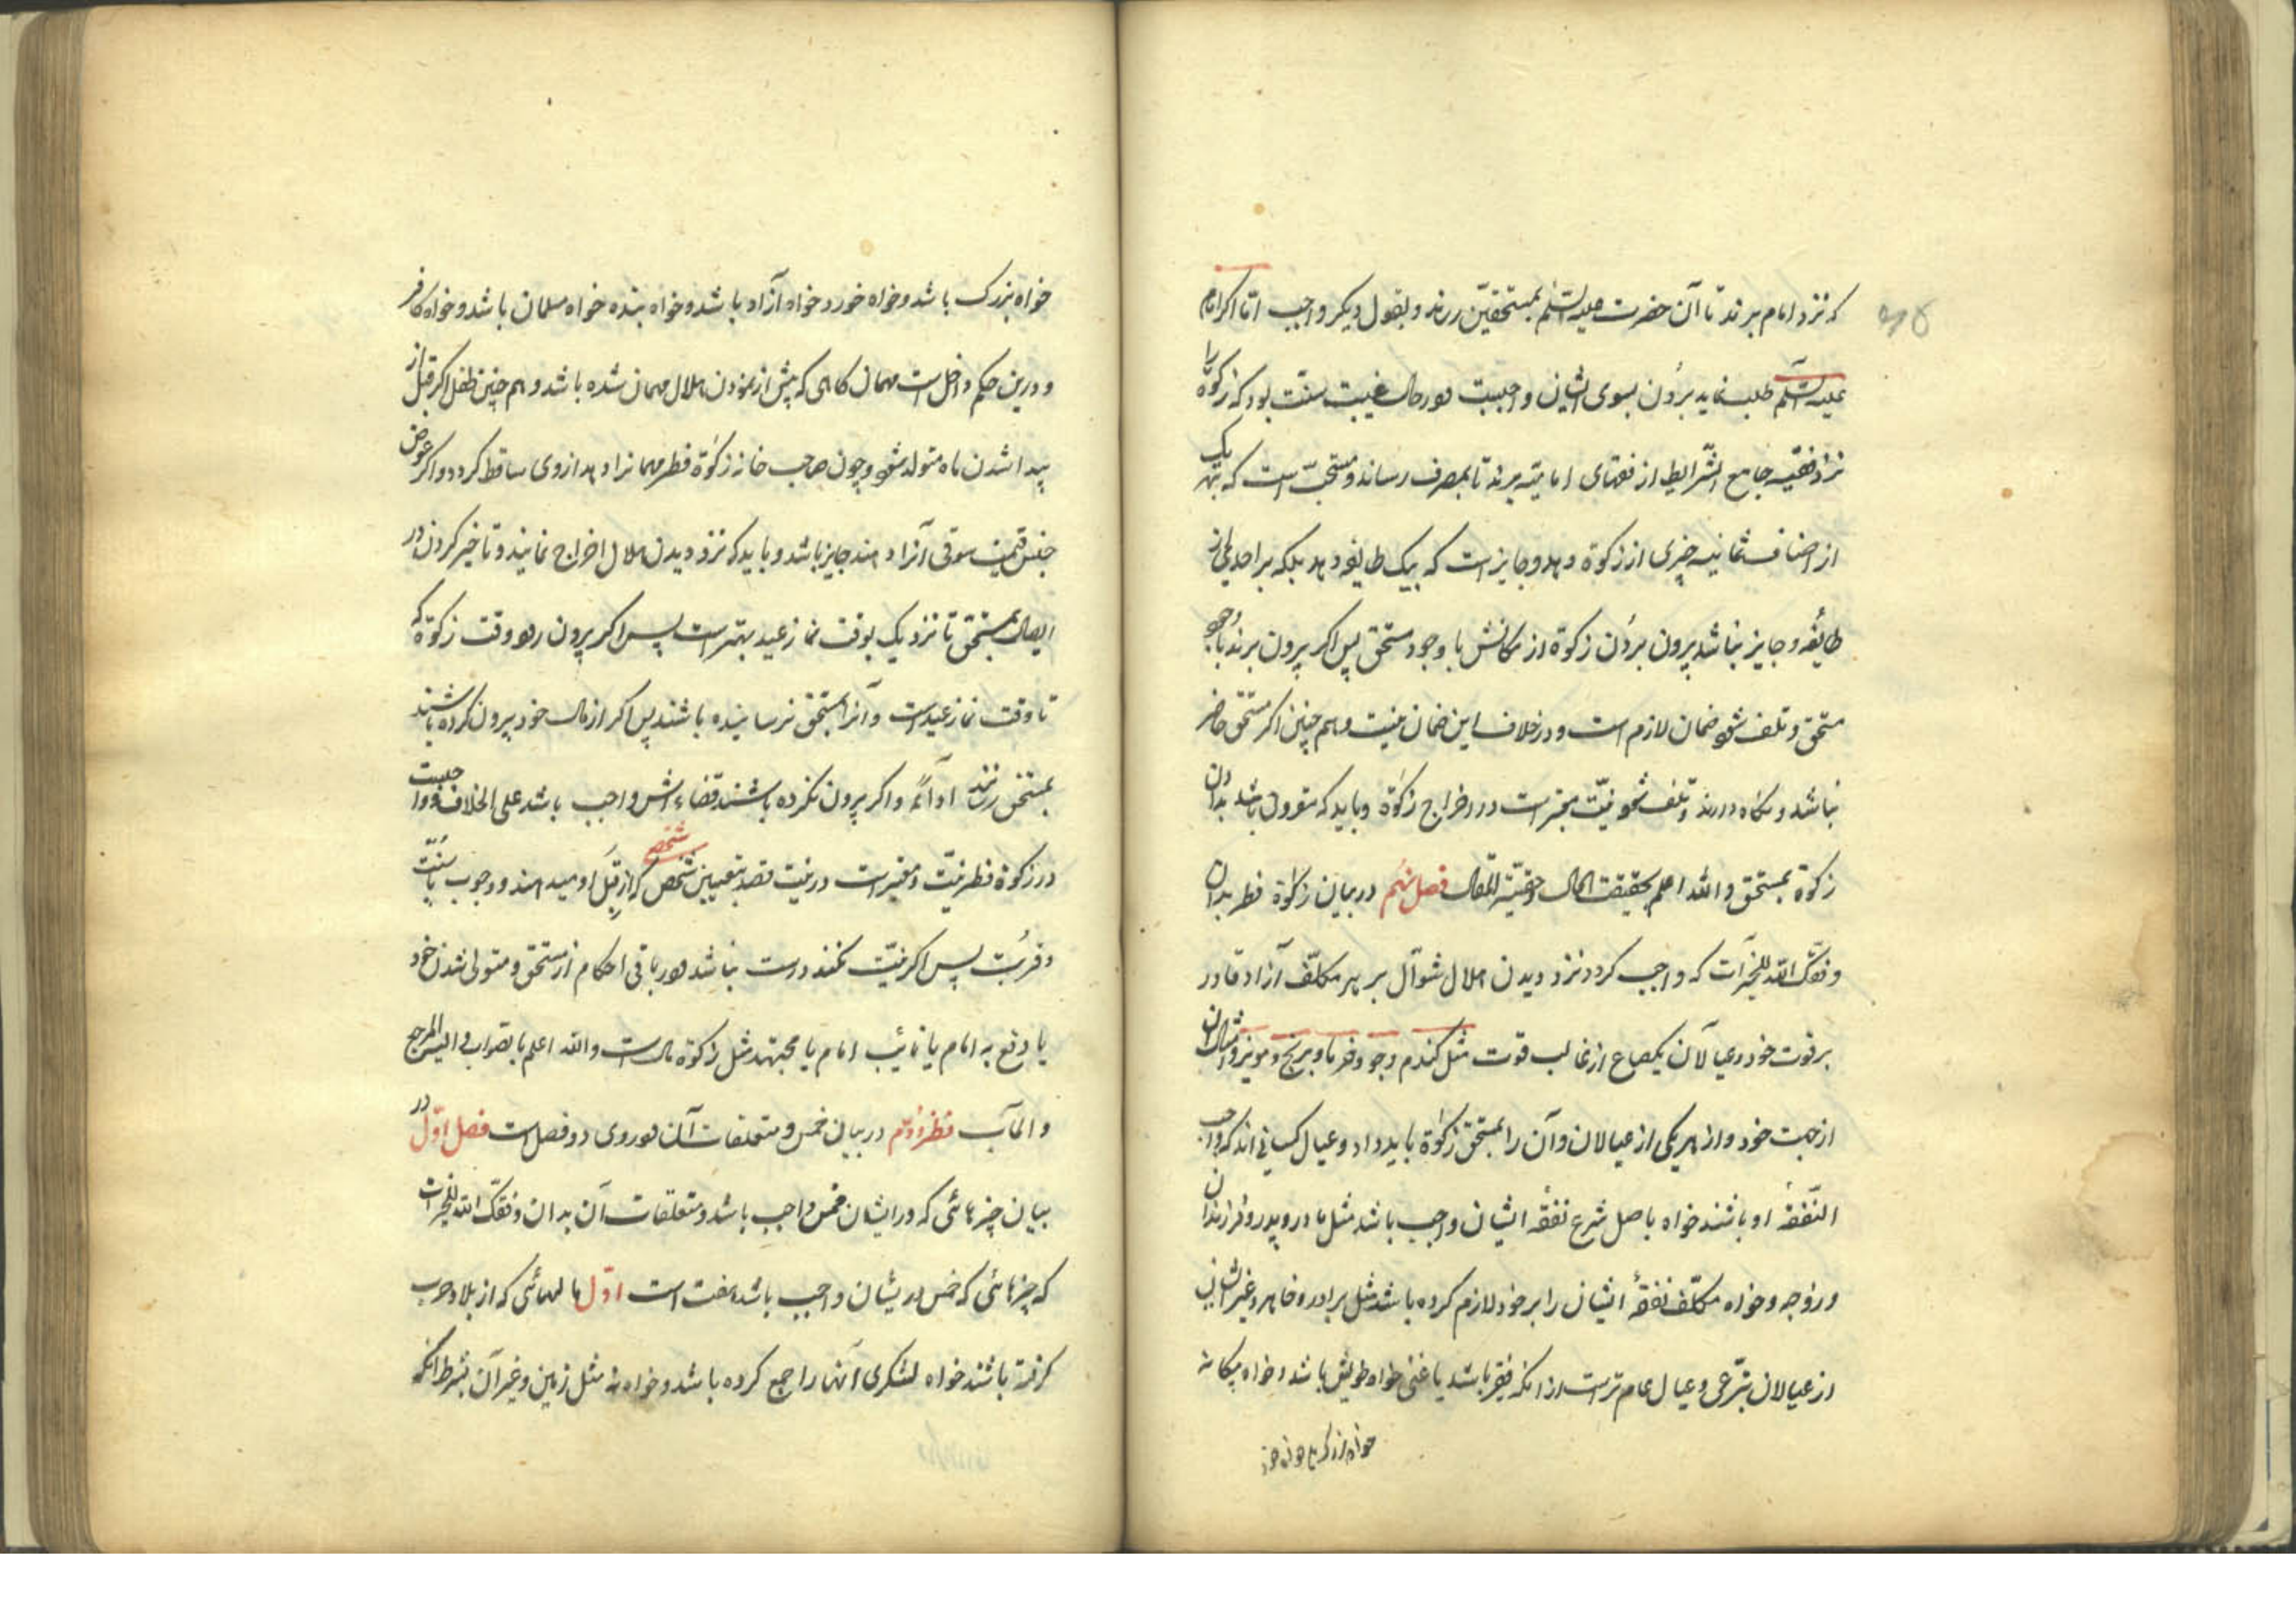 که نزد امام برند تا آن حضرت علیه السّلم بمستحقین رساند و بقول دیگر واجب امّا اگر امام
علیه السّلم طلب نماید بردن بسوی ایشان واجبست و در حال غیبت سنّت بود که زکوة را
نزد فقیه جامع الشّرایط از فقهای امامیّه برند تا بمصرف رساند و مستحبّ است که بهر یک
از اصناف ثمانیه چیزی از زکوة دهد و جایز است که بیک طایفه دهد بلکه براحدی از
طایفه و جایز نباشد بیرون بردن زکوة از مکانش با وجود مستحق پس اگر بیرون برند با وجود
مستحق و تلف شود ضمان لازم است و در خلاف این ضمان نیست و هم چنین اگر مستحق حاضر
نباشد و نگاه دارند و تلف شود نیّت معتبر است در اخراج زکوة و باید که مقرون باشد بدادن
زکوة بمستحق و الله اعلم بحقیقت الحال و حقیّة المقال فصل نهم در بیان زکوة فطر بدان
وفقک الله للخیرات که واجب گردد نزد دیدن هلال شوّال بر هر مکلّف آزاد قادر
بر قوت خود و عیالان یکصاع از غالب قوت مثل گندم و جو و خرما و برنج و مویز و امثال آن
از جهت خود و از هر یکی از عیالان و آن را بمستحق زکوة باید داد و عیال کسانی اند که واجب
النّفقه او باشند خواه باصل شرع نفقه ایشان واجب باشد مثل مادر و پدر و فرزندان
و زوجه و خواه مکلّف نفقهٔ ایشان را بر خود لازم کرده باشد مثل برادر و خواهر و غیر ایشان
از عیالان تبرّعی و عیال عام تر است از انکه فقیر باشد یا غنی خواه خویش باشد و خواه بیگانه
خواه بزرگ باشد و خواه خورد و خواه آزاد باشد و خواه بنده خواه مسلمان باشد و خواه کافر
و درین حکم داخل است مهمان گاهی که پیش از نمودن هلال مهمان شده باشد و هم چنین طفل اگر قبل از
پیدا شدن ماه متولد شود و چون صاحب خانه زکوة فطر مهمانرا دهد از وی ساقط گردد و اگر عوض
جنس قیمت سوقی آنرا دهند جایز باشد و باید که نزد دیدن هلال اخراج نمایند و تاخیر کردن در
ایصال بمستحق تا نزدیک بوقت نماز عید بهتر است پس اگر بیرون رود وقت زکوة که
تا وقت نماز عید است و آنرا بمستحق نرسانیده باشند پس اگر از مال خود بیرون کرده باشند
بمستحق رسانند اداءً و اگر بیرون نکرده باشند قضاء اش واجب باشد علی الخلاف و واجبست
در زکوة فطر نیّت و معتبر است در نیّت قصد تعیین شخص که از قبل او میدهند و وجوب یا سنّت
شخص
و قربت پس اگر نیّت نکنند درست نباشد و در باقی احکام از مستحق و متولی شدن خود
یا دفع به امام یا نائب امام یا مجتهد مثل زکوة مال است و الله اعلم بالصواب و الیه المرجع
و المآب در بیان خمس و متعلقات آن و در وی دو فصل است فصل اوّل در
بیان چیزهائی که در ایشان خمس واجب باشد و متعلقات آن بدان وفقک الله للخیرات
که چیزهائی که خمس در ایشان واجب باشد هفت است اوّل مالهائی که از بلاد حرب
گرفته باشند خواه لشکری آنها را جمع کرده باشد و خواه نه مثل زمین و غیر آن بشرط انکه